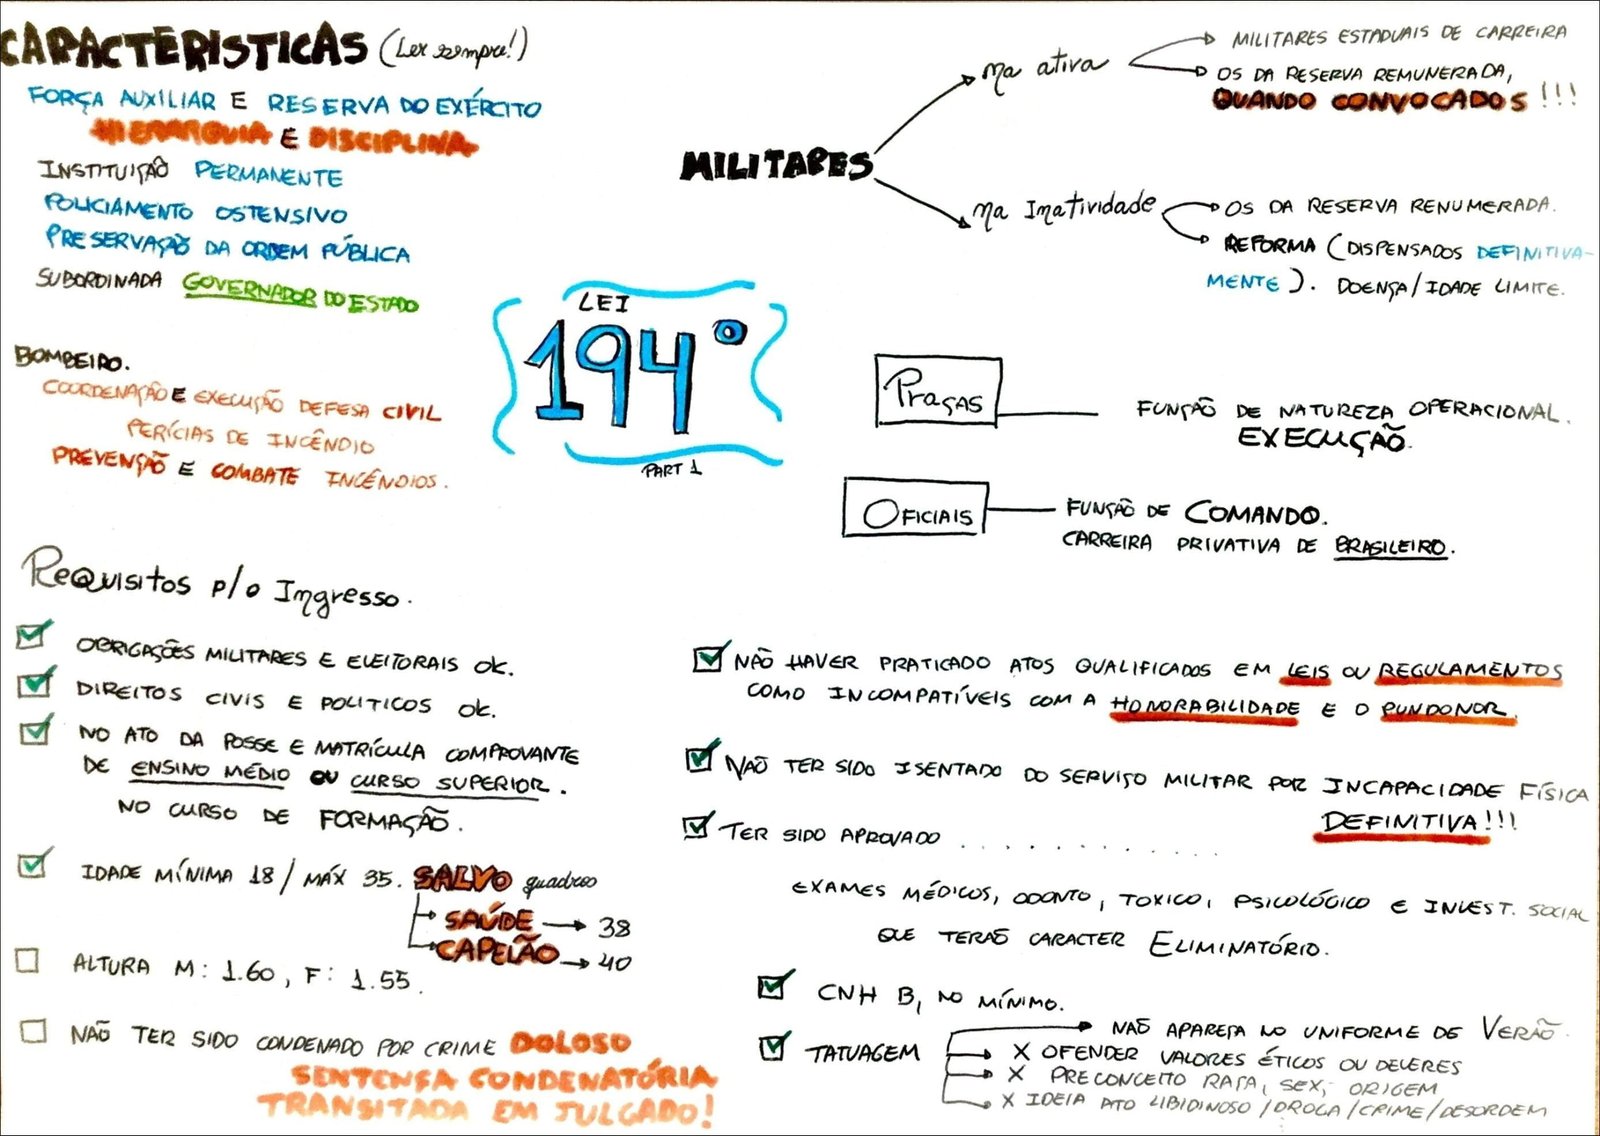 CARACTERISTICAS (Ler sempre!)
FORÇA AUXILIAR E RESERVA DO EXÉRCITO
HIERARQUIA E DISCIPLINA
INSTITUIÇÃO PERMANENTE
POLICIAMENTO OSTENSIVO
PRESERVAÇÃO DA ORDEM PÚBLICA
SUBORDINADA GOVERNADOR DO ESTADO
BOMBEIRO.
COORDENAÇÃO E EXECUÇÃO DEFESA CIVIL
PERÍCIAS DE INCÊNDIO
PREVENÇÃO E COMBATE INCÊNDIOS.
LEI
194°
PART 1
MILITARES
na ativa
MILITARES ESTADUAIS DE CARREIRA
OS DA RESERVA REMUNERADA,
QUANDO CONVOCADOS!!!
na Inatividade
OS DA RESERVA RENUMERADA.
REFORMA (DISPENSADOS DEFINITIVA-
MENTE). DOENÇA/IDADE LIMITE.
PRAÇAS
FUNÇÃO DE NATUREZA OPERACIONAL.
EXECUÇÃO.
OFICIAIS
FUNÇÃO DE COMANDO.
CARREIRA PRIVATIVA DE BRASILEIRO.
Requisitos p/o Ingresso.
OBRIGAÇÕES MILITARES E ELEITORAIS OK.
DIREITOS CIVIS E POLITICOS OK.
NO ATO DA POSSE E MATRÍCULA COMPROVANTE
DE ENSINO MÉDIO OU CURSO SUPERIOR.
NO CURSO DE FORMAÇÃO.
IDADE MÍNIMA 18/MÁX 35. SALVO quadros
SAÚDE → 38
CAPELÃO → 40
ALTURA M: 1.60, F: 1.55.
NÃO TER SIDO CONDENADO POR CRIME DOLOSO
SENTENÇA CONDENATÓRIA
TRANSITADA EM JULGADO!
NÃO HAVER PRATICADO ATOS QUALIFICADOS EM LEIS OU REGULAMENTOS
COMO INCOMPATÍVEIS COM A HONORABILIDADE E O PUNDONOR.
NÃO TER SIDO ISENTADO DO SERVIÇO MILITAR POR INCAPACIDADE FÍSICA
DEFINITIVA!!!
TER SIDO APROVADO . . . . . . . . . . . .
EXAMES MÉDICOS, ODONTO, TOXICO, PSICOLÓGICO E INVEST. SOCIAL
QUE TERÃO CARACTER ELIMINATÓRIO.
CNH B, NO MÍNIMO.
TATUAGEM
NÃO APAREÇA NO UNIFORME DE VERÃO.
X OFENDER VALORES ÉTICOS OU DEVERES
X PRECONCEITO RAÇA, SEX, ORIGEM
X IDEIA ATO LIBIDINOSO/DROGA/CRIME/DESORDEM